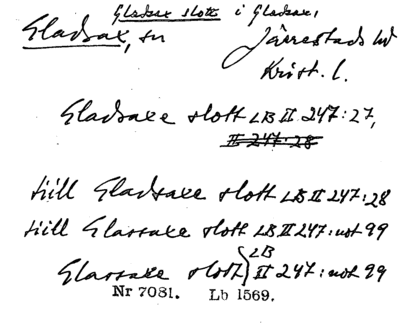 Gladsax slott i Gladsax,
Gladsax, sn Järrestads hd
Krist. l.
Gladsaxe slott LB II 247:27,
II 247:28
till Gladsaxe slott LB II 247:28
till Glassaxe slott LB II 247: not 99
Glassaxe slott} LB II 247: not 99
Nr 7081. Lb 1569.